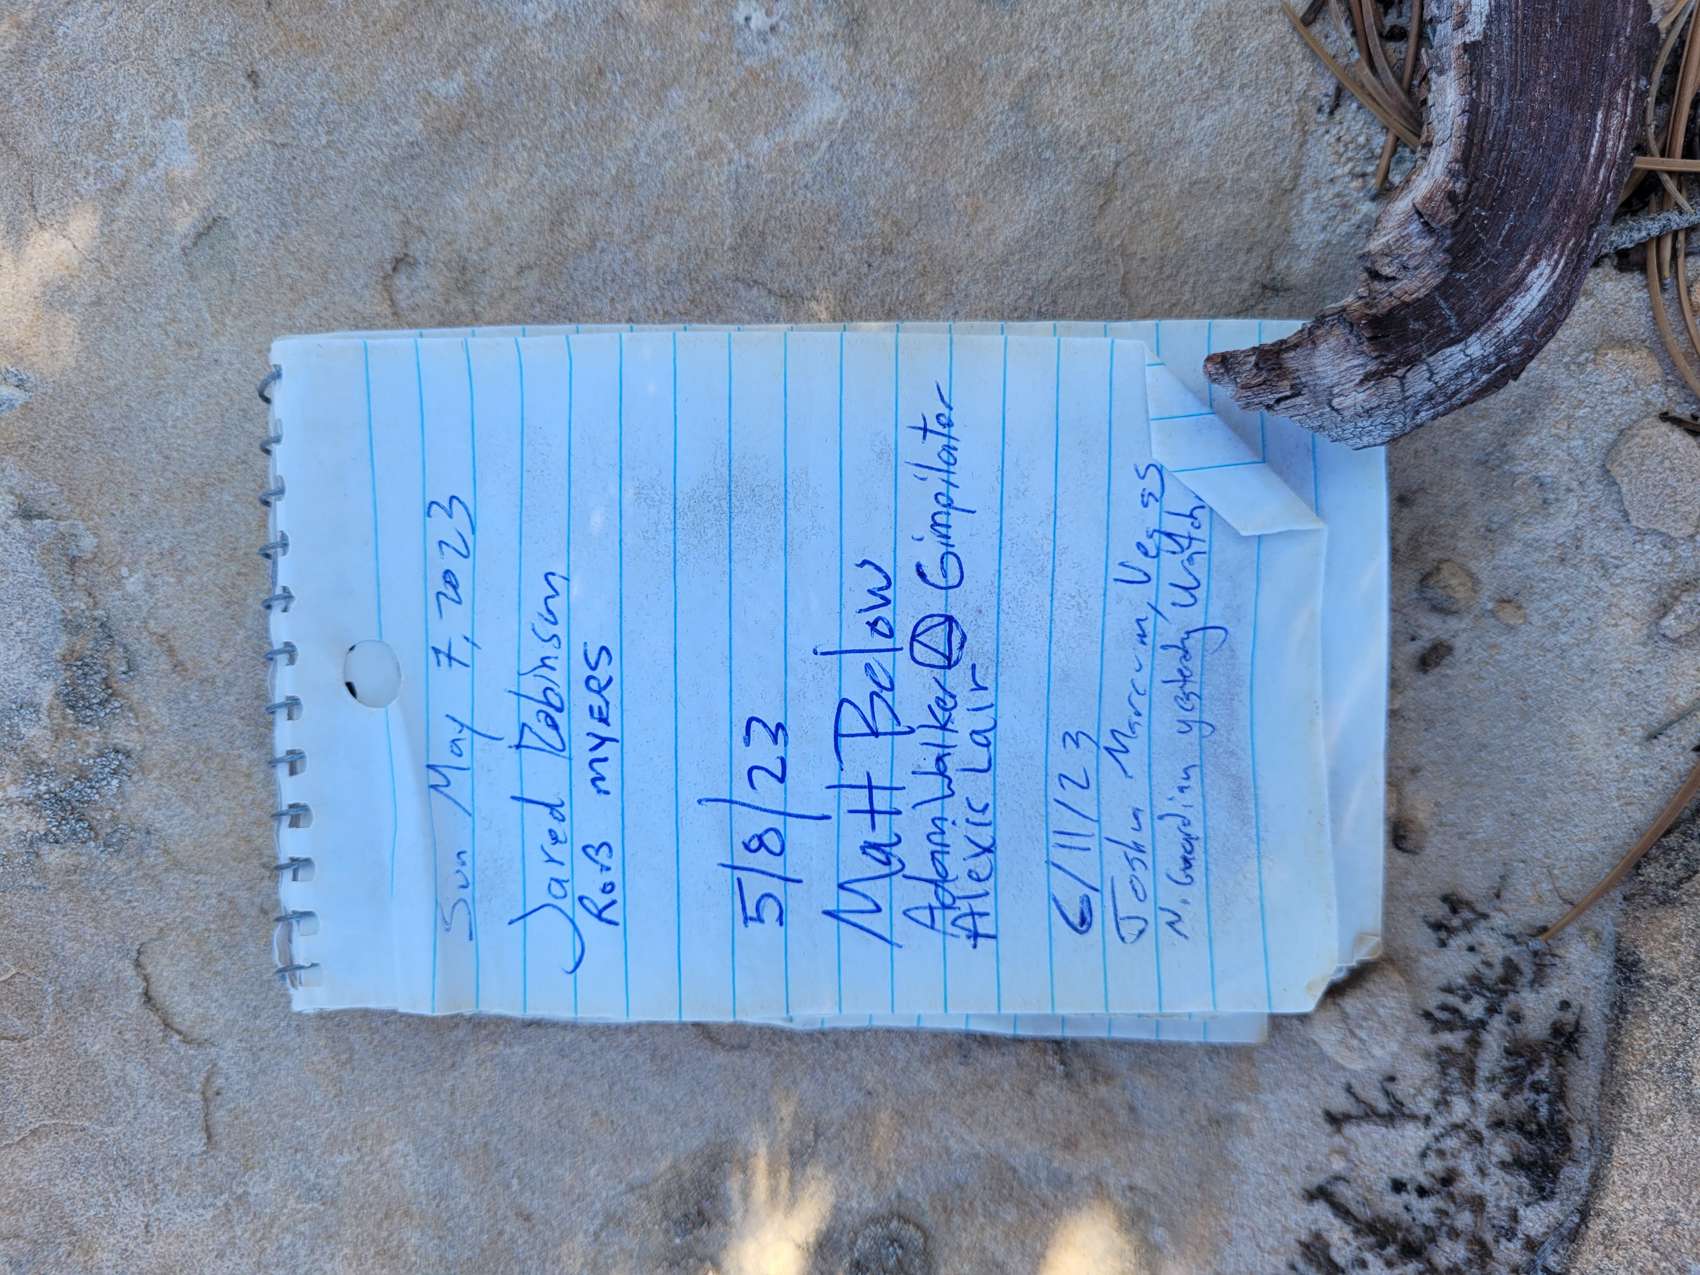 Sun May 7, 2023
Jared Robinson
ROB MYERS
5/8/23
Matt Below
Adam Walker Gimpilator
Alexic Lair
6/11/23
Joshua Marcum, Vegas
N. Guardian yesterday